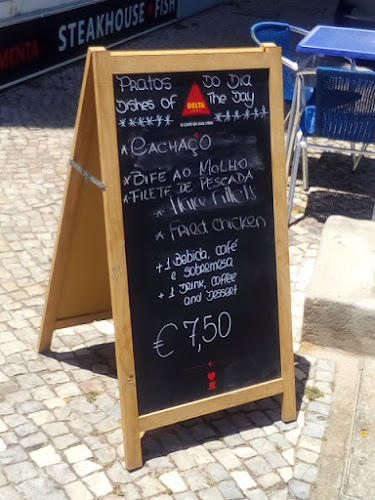 MENTA STEAKHOUSE • FISH
PRATOS DO DIA
DISHES OF THE DAY
DELTA
O CAFÉ DA SUA VIDA
*CACHAÇO
*BIFE AO MOLHO
*FILETE DE PESCADA
*Hake Fillet
*FRIED CHICKEN
+1 BEBIDA, CAFÉ
e SOBREMESA
+1 DRINK, COFFEE
AND DESSERT
€ 7,50